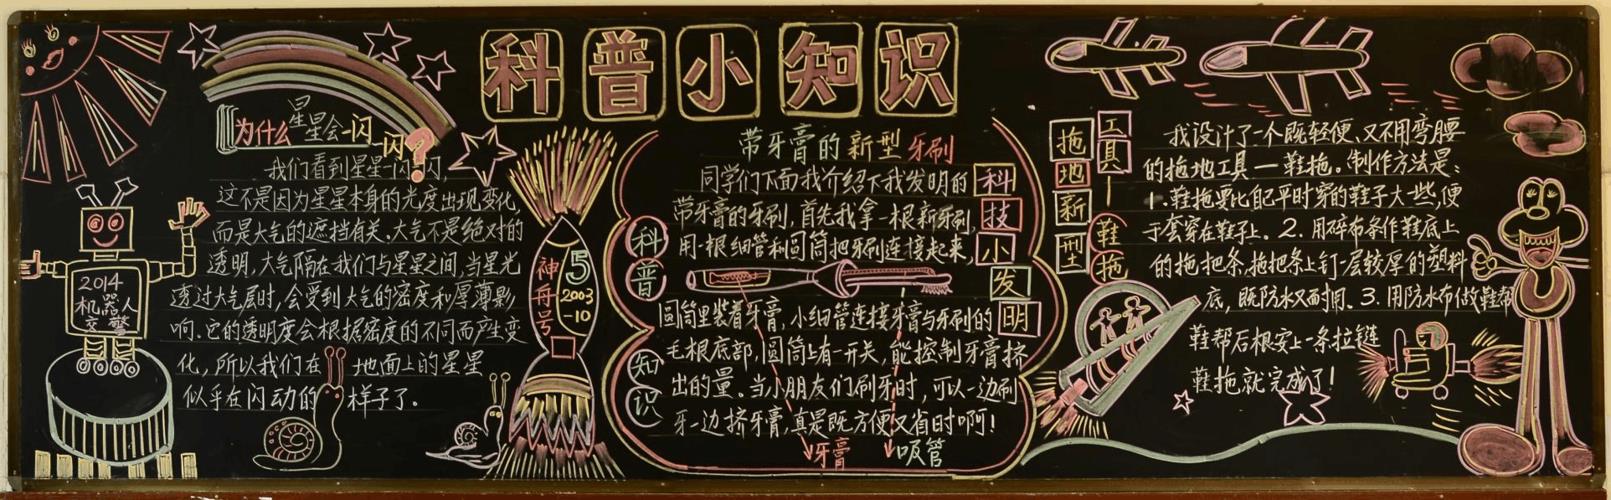 科普小知识
为什么星星会一闪一闪?
我们看到星星一闪一闪,
这不是因为星星本身的光度出现变化,
而是大气的遮挡有关。大气不是绝对的
透明,大气隔在我们与星星之间,当星光
透过大气层时,会受到大气的密度和厚薄影
响。它的透明度会根据密度的不同而产生变
化,所以我们在地面上的星星
似乎在闪动的样子了。
2014
机器人
交警
神舟5号
2003
-10
科普知识
带牙膏的新型牙刷
同学们下面我介绍下我发明的
带牙膏的牙刷,首先我拿一根新牙刷,
用一根细管和圆筒把牙刷连接起来,
圆筒里装着牙膏,小细管连接牙膏与牙刷的
毛根底部,圆筒上有一开关,能控制牙膏挤
出的量。当小朋友们刷牙时,可以一边刷
牙一边挤牙膏,真是既方便又省时啊!
牙膏
吸管
科技小发明
新型拖地
工具—鞋拖
我设计了一个既轻便、又不用弯腰
的拖地工具—鞋拖。制作方法是:
1.鞋拖要比自己平时穿的鞋子大一些,便
于套穿在鞋子上。2.用碎布条作鞋底上
的拖把条,拖把条上钉一层较厚的塑料
底,既防水又耐用。3.用防水布做鞋帮
鞋帮后根安上一条拉链
鞋拖就完成了!